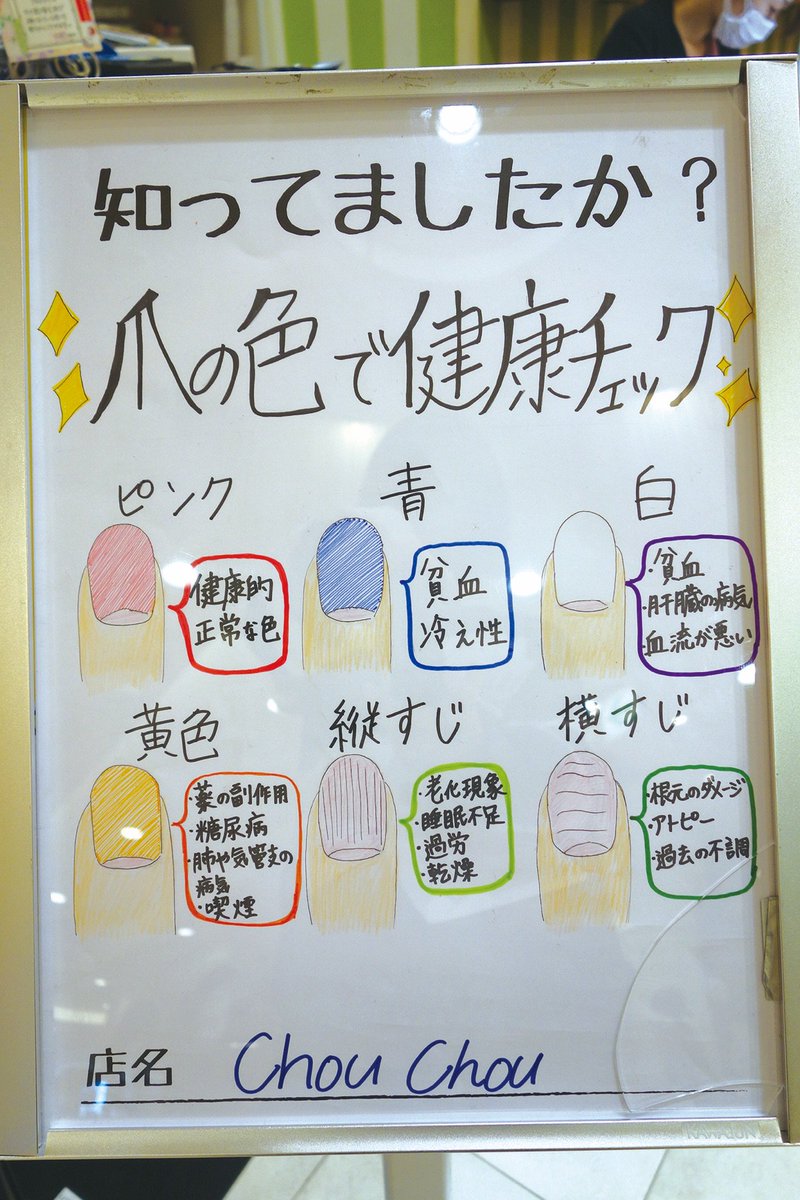 知ってましたか?
爪の色で健康チェック
ピンク
青
白
健康的
正常な色
貧血
冷え性
・貧血
・肝臓の病気
・血流が悪い
黄色
縦すじ
横すじ
・薬の副作用
・糖尿病
・肺や気管支の
病気
・喫煙
・老化現象
・睡眠不足
・過労
・乾燥
・根元のダメージ
・アトピー
・過去の不調
店名 Chou Chou